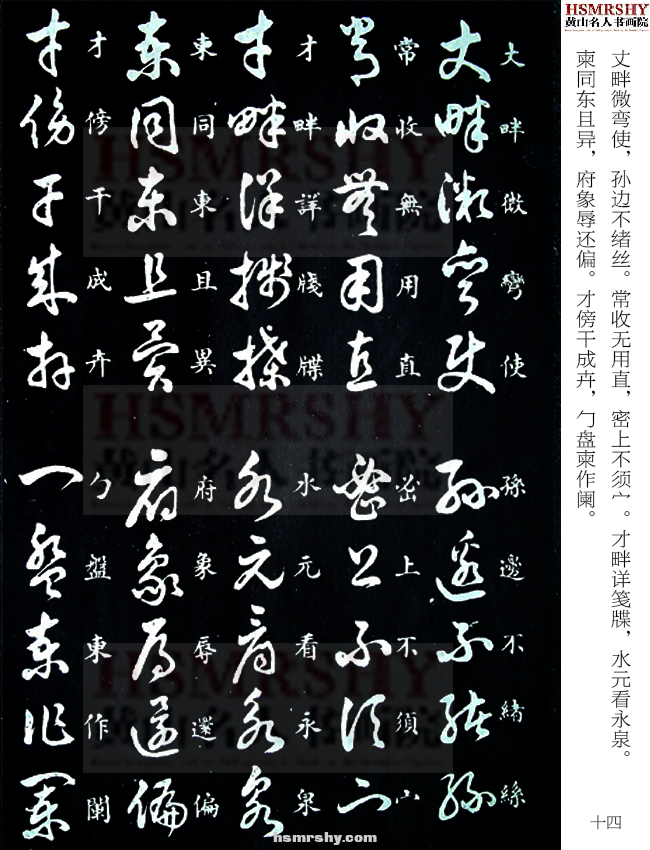 HSMRSHY
黄山名人书画院
丈畔微弯使，孙边不绪丝。常收无用直，密上不须宀。才畔详笺牒，水元看永泉。
柬同东且异，府象辱还偏。才傍干成卉，勹盘柬作阑。
丈畔微彎使 孫邊不緒絲
常收無用直 上不須宀
才畔詳牋牒 水元看永泉
東同東且異 府象辱還偏
才傍干成卉 勹盤東作闌
HSMRSHY
黄山名人书画院
HSMRSHY
黄山名人书画院
HSMRSHY
黄山名人书画院
hsmrshy.com
十四